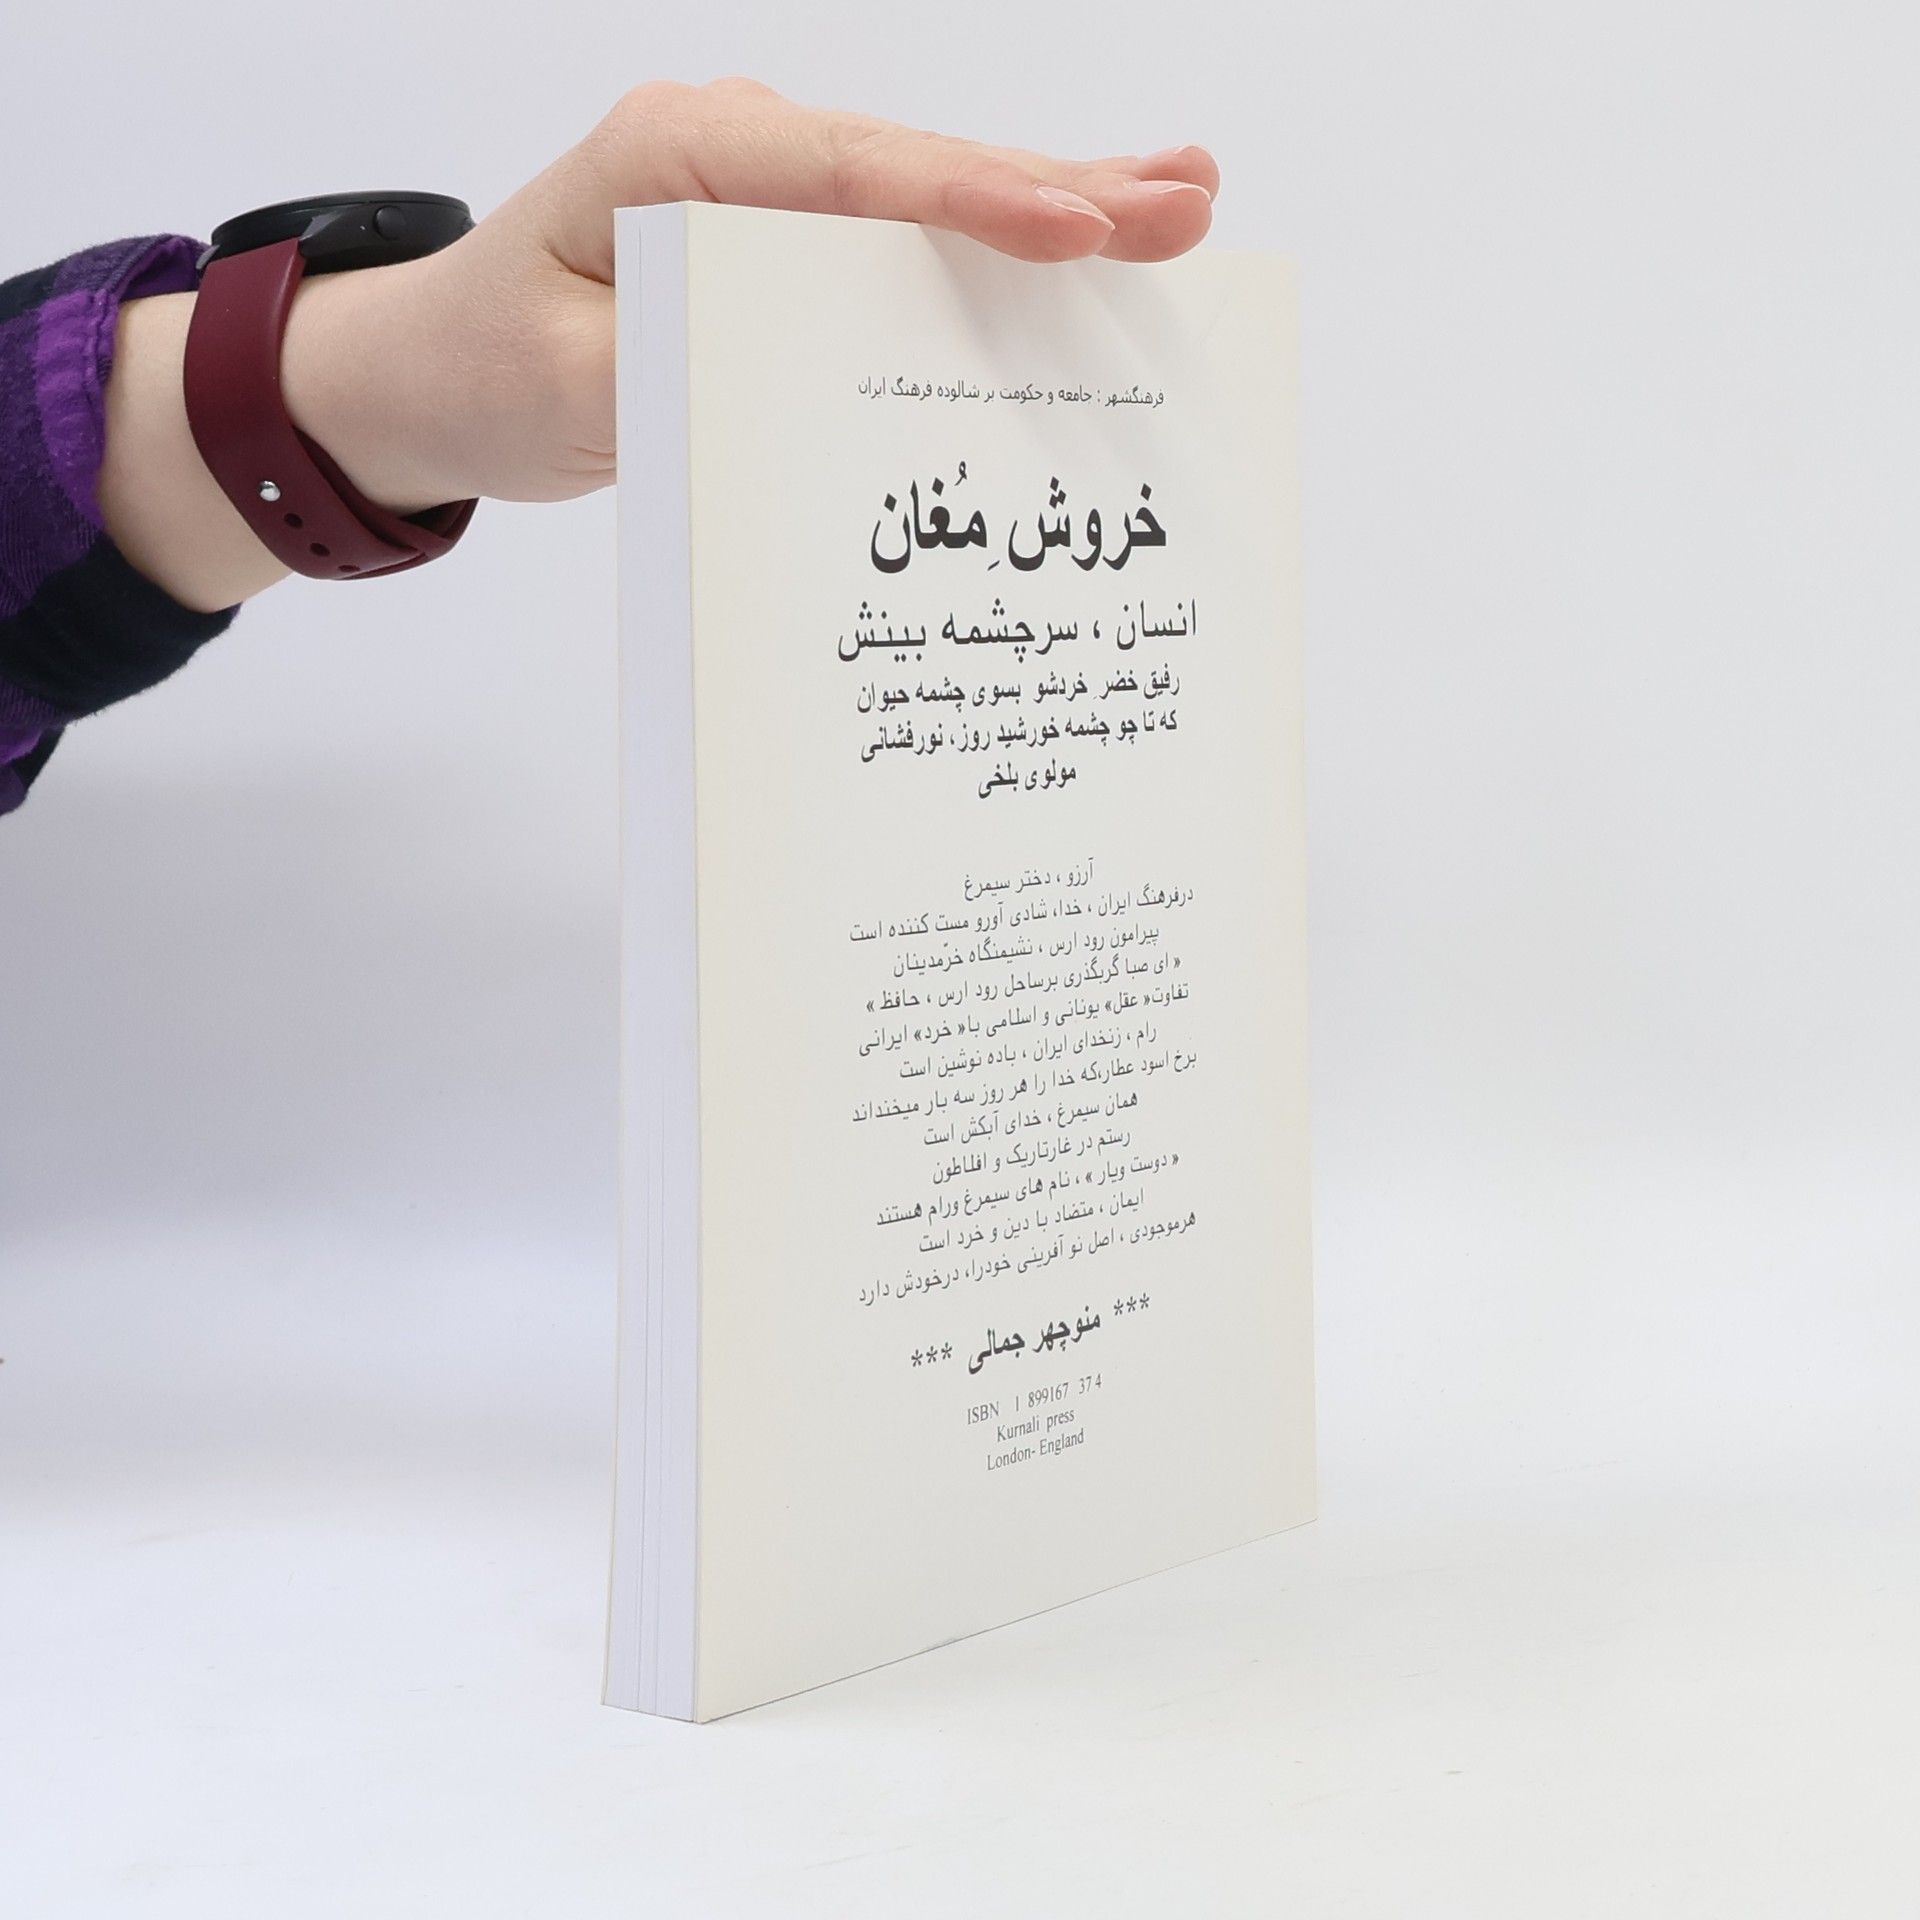 فرهنگشهر : جامعه و حکومت بر شالوده فرهنگ ایران
خروشِ مُغان
انسان ، سرچشمه بینش
رفیق خضرِ خردشو بسوی چشمه حیوان
که تا چو چشمه خورشید روز، نورفشانی
مولوی بلخی
آرزو ، دختر سیمرغ
درفرهنگ ایران ، خدا، شادی آورو مست کننده است
پیرامون رود ارس ، نشیمنگاه خرّمدینان
« ای صبا گربگذری برساحل رود ارس ، حافظ »
تفاوت« عقل» یونانی و اسلامی با« خرد» ایرانی
رام ، زنخدای ایران ، باده نوشین است
بُرخ اسود عطار،که خدا را هر روز سه بار میخنداند
همان سیمرغ ، خدای آبکش است
رستم در غارتاریک و افلاطون
« دوست ویار » ، نام های سیمرغ ورام هستند
ایمان ، متضاد با دین و خرد است
هرموجودی ، اصل نو آفرینی خودرا، درخودش دارد
*** منوچهر جمالی ***
ISBN 1 899167 37 4
Kurnali press
London- England